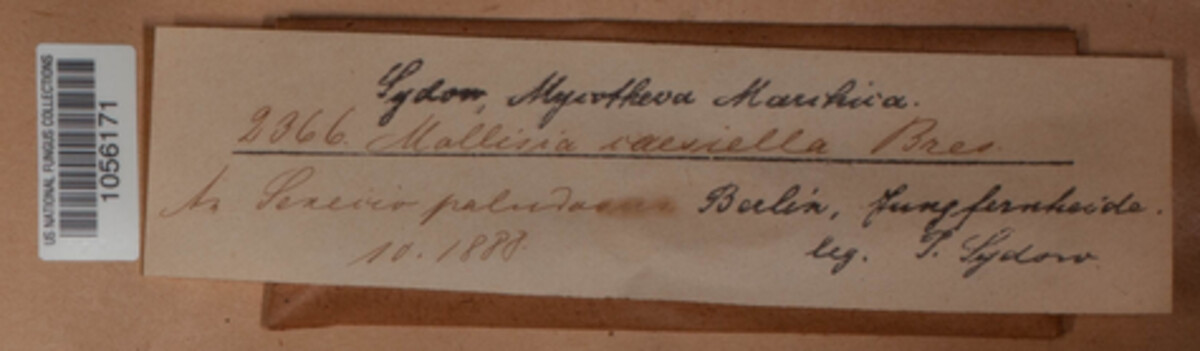 US NATIONAL FUNGUS COLLECTIONS
1056171
Sydow, Mycotheca Marchica.
2366. Mollisia caesiella Bres.
An Senecio paludosus Berlin, Jungfernheide.
10. 1888 leg. P. Sydow.